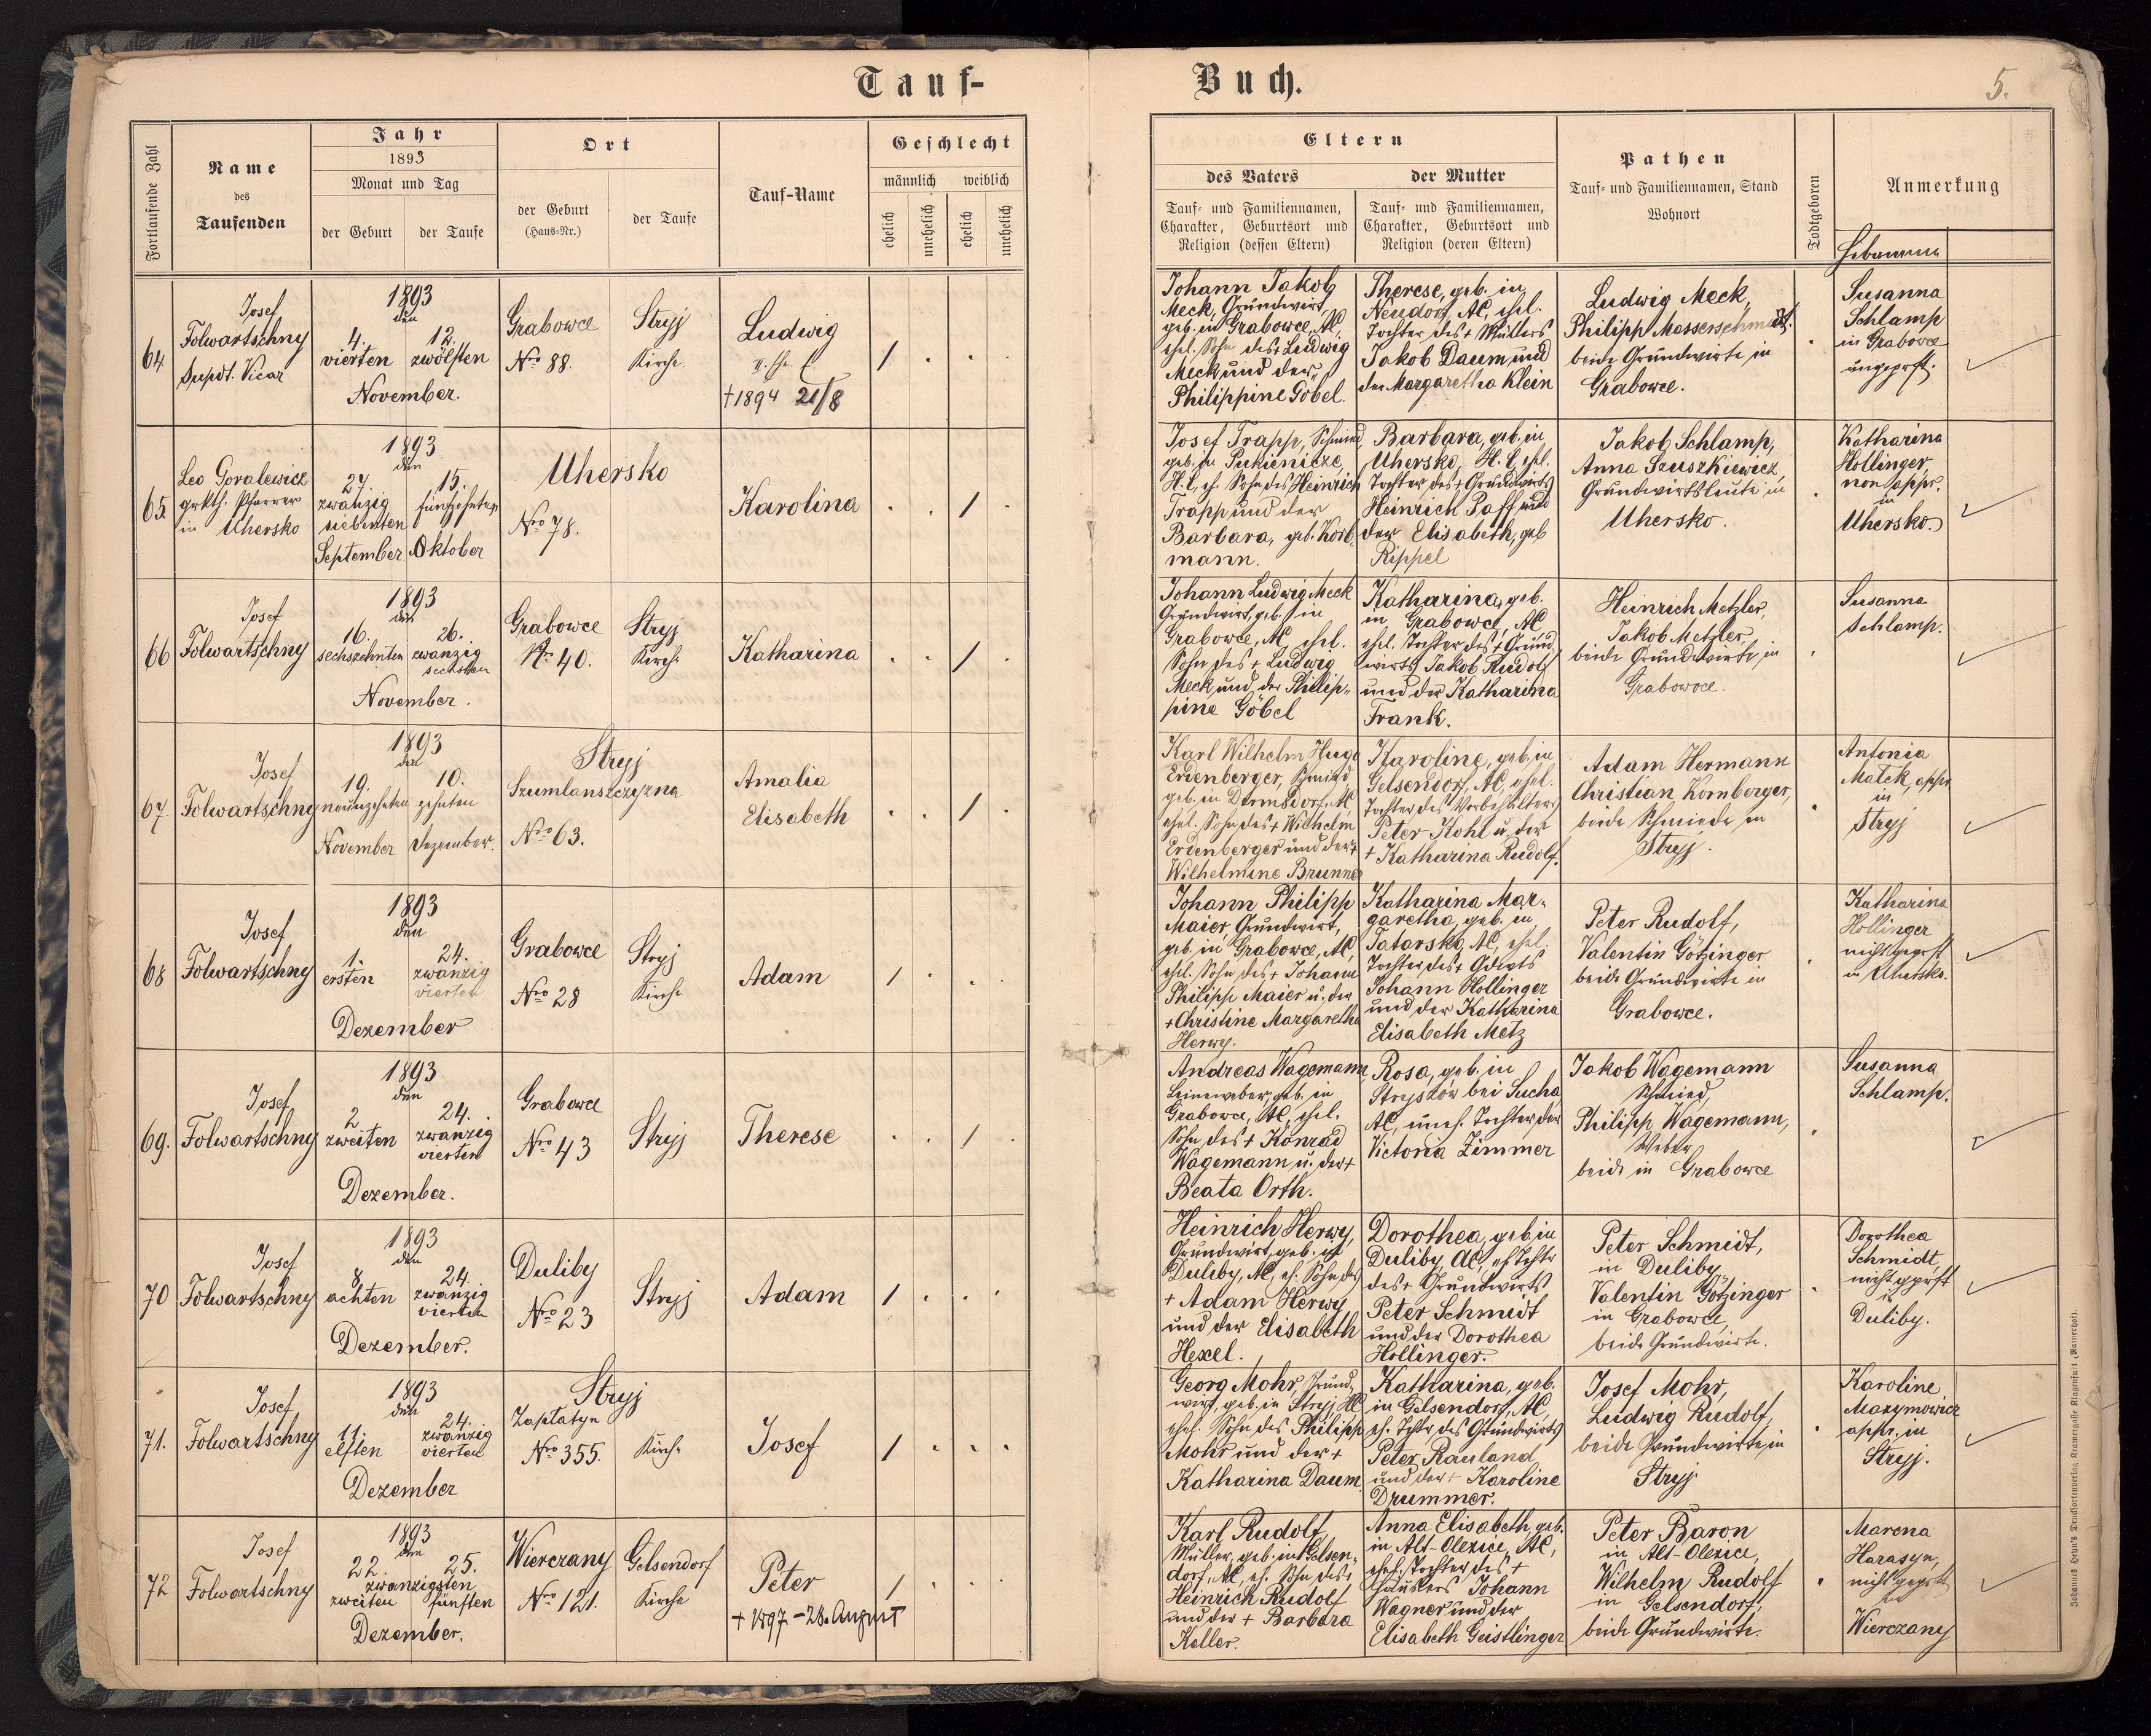 Tauf-
Buch.
5.
Fortlaufende Zahl
Name
des
Taufenden
Jahr
1893
Monat und Tag
der Geburt
der Taufe
Ort
der Geburt
(Haus-Nr.)
der Taufe
Tauf-Name
Geschlecht
männlich
weiblich
ehelich
unehelich
ehelich
unehelich
Eltern
des Vaters
Tauf- und Familiennamen,
Charakter, Geburtsort und
Religion (dessen Eltern)
der Mutter
Tauf- und Familiennamen,
Charakter, Geburtsort und
Religion (deren Eltern)
Pathen
Tauf- und Familiennamen, Stand
Wohnort
Todtgeboren
Anmerkung
Hebamme
64.
Josef
Folwartschny
Supdt. Vicar
1893
den
4. 12.
vierten zwölften
November.
Grabowce
Nro 88.
Stryj
Kirche
Ludwig
†1894 21/8
/
Johann Jakob
Meck, Grundwirt,
geb. in Grabowce, AC,
ehel. Sohn des † Ludwig
Meck und der
Philippine Göbel.
Therese, geb. in
Neudorf, AC, ehel.
Tochter des † Müllers
Jakob Daum und
der Margaretha Klein
Ludwig Meck,
Philipp Messerschmidt,
beide Grundwirte in
Grabowce.
Susanna
Schlamp
in Grabowce
ungeprft.
65.
Leo Goralewicz
grkth. Pfarrer
in Uhersko
1893
den
27. 15.
zwanzig fünfzehnten
siebenten
September. Oktober
Uhersko
Nro 78.
Karolina
/
Josef Trapp, Schmied,
geb. in Pukienicze,
H.C, eh. Sohn des Heinrich
Trapp und der
Barbara, geb. Korb
mann.
Barbara, geb. in
Uhersko, H.C, ehel.
Tochter des † Grundwirts
Heinrich Paff und
der Elisabeth, geb
Rippel
Jakob Schlamp,
Anna Szuszkiewicz,
Grundwirtsleute in
Uhersko.
Katharina
Hollinger,
non appr.
in
Uhersko.
66
Josef
Folwartschny
1893
den
16. 26.
sechszehnten zwanzig
sechsten
November.
Grabowce
Nr. 40.
Stryj
Kirche
Katharina
/
Johann Ludwig Meck
Grundwirt, geb. in
Grabowce, AC ehel.
Sohn des † Ludwig
Meck und der Philip-
pine Göbel
Katharina, geb.
in Grabowce, AC
ehel. Tochter des † Grund
wirts Jakob Rudolf
und der Katharina
Frank.
Heinrich Metzler,
Jakob Metzler,
beide Grundwirte in
Grabowce.
Susanna
Schlamp.
67.
Josef
Folwartschny
1893
den
19. 10.
neunzehnten zehnten
November Dezember.
Stryj
Szumlanszczyzna
Nro 63.
Amalia
Elisabeth
/
Karl Wilhelm Hugo
Erdenberger, Schmied
geb. in Dornsdorf, AC,
ehel. Sohn des † Wilhelm
Erdenberger und der †
Wilhelmine Brunner
Karoline, geb. in
Gelsendorf, AC, ehel.
Tochter des Vorbehälters
Peter Kohl u. der
† Katharina Rudolf.
Adam Hermann
Christian Kornberger,
beide Schmiede in
Stryj.
Antonia
Matek, appr.
in
Stryj
68
Josef
Folwartschny
1893
den
1. 24.
ersten zwanzig
vierten
Dezember
Grabowce
Nro 28
Stryj
Kirche
Adam
/
Johann Philipp
Maier, Grundwirt,
geb. in Grabowce, AC,
ehel. Sohn des † Johann
Philipp Maier u. der
† Christine Margaretha
Herwy.
Katharina Mar-
garetha, geb. in
Tatarsko, AC, ehel.
Tochter des † Gdwts
Johann Hollinger
und der Katharina
Elisabeth Metz
Peter Rudolf,
Valentin Götzinger
beide Grundwirte in
Grabowce.
Katharina
Hollinger
nicht geprft
in Uhersko.
69.
Josef
Folwartschny
1893
den
2 24.
zweiten zwanzig
vierten
Dezember.
Grabowce
Nro 43
Stryj
Therese
/
Andreas Wagemann,
Leineweber, geb. in
Grabowce, AC, ehel.
Sohn des † Konrad
Wagemann u. der †
Beata Orth.
Rosa, geb. in
Stryszów bei Sucha,
AC, uneh. Tochter der
Victoria Zimmer
Jakob Wagemann
Schmied,
Philipp Wagemann,
Weber
beide in Grabowce
Susanna
Schlamp.
70
Josef
Folwartschny
1893
den
8 24.
achten zwanzig
vierten
Dezember.
Duliby
Nro 23
Stryj
Adam
/
Heinrich Herwy,
Grundwirt, geb. in
Duliby, AC, eh. Sohn des
† Adam Herwy
und der Elisabeth
Hexel.
Dorothea, geb. in
Duliby, AC, eh Tchtr
des † Grundwirts
Peter Schmidt
und der Dorothea
Hollinger.
Peter Schmidt,
in Duliby,
Valentin Götzinger
in Grabowce,
beide Grundwirte.
Dorothea
Schmidt,
nicht geprft
in
Duliby.
71.
Josef
Folwartschny
1893
den
11. 24.
elften zwanzig
vierten
Dezember
Stryj
Zaplatyn
Nro 355.
Kirche
Josef
/
Georg Mohr, Grund-
wirt, geb. in Stryj, AC
ehel. Sohn des Philipp
Mohr und der †
Katharina Daum
Katharina, geb.
in Gelsendorf, AC,
eh. Tchtr. des Grundwirts
Peter Rauland
und der † Karoline
Drummer.
Josef Mohr,
Ludwig Rudolf,
beide Grundwirte in
Stryj.
Karoline
Maxymowicz
appr. in
Stryj.
72
Josef
Folwartschny
1893
den
22. 25.
zwanzigsten
zweiten fünften
Dezember.
Wierczany
Nro 121.
Gelsendorf
Kirche
Peter
† 1897 - 28. August
/
Karl Rudolf,
Müller, geb. in Gelsen-
dorf, AC, eh. Sohn des †
Heinrich Rudolf
und der † Barbara
Keller.
Anna Elisabeth, geb.
in Alt-Olexice, AC,
ehel. Tochter des †
Häuslers Johann
Wagner und der
Elisabeth Geistlinger
Peter Baron
in Alt-Olexice,
Wilhelm Rudolf
in Gelsendorf,
beide Grundwirte.
Marena
Harasyn,
nicht geprft
Wierczany
Johannes Heyn's Drucksortenverlag, Kramergasse Klagenfurt (Rainerhof).